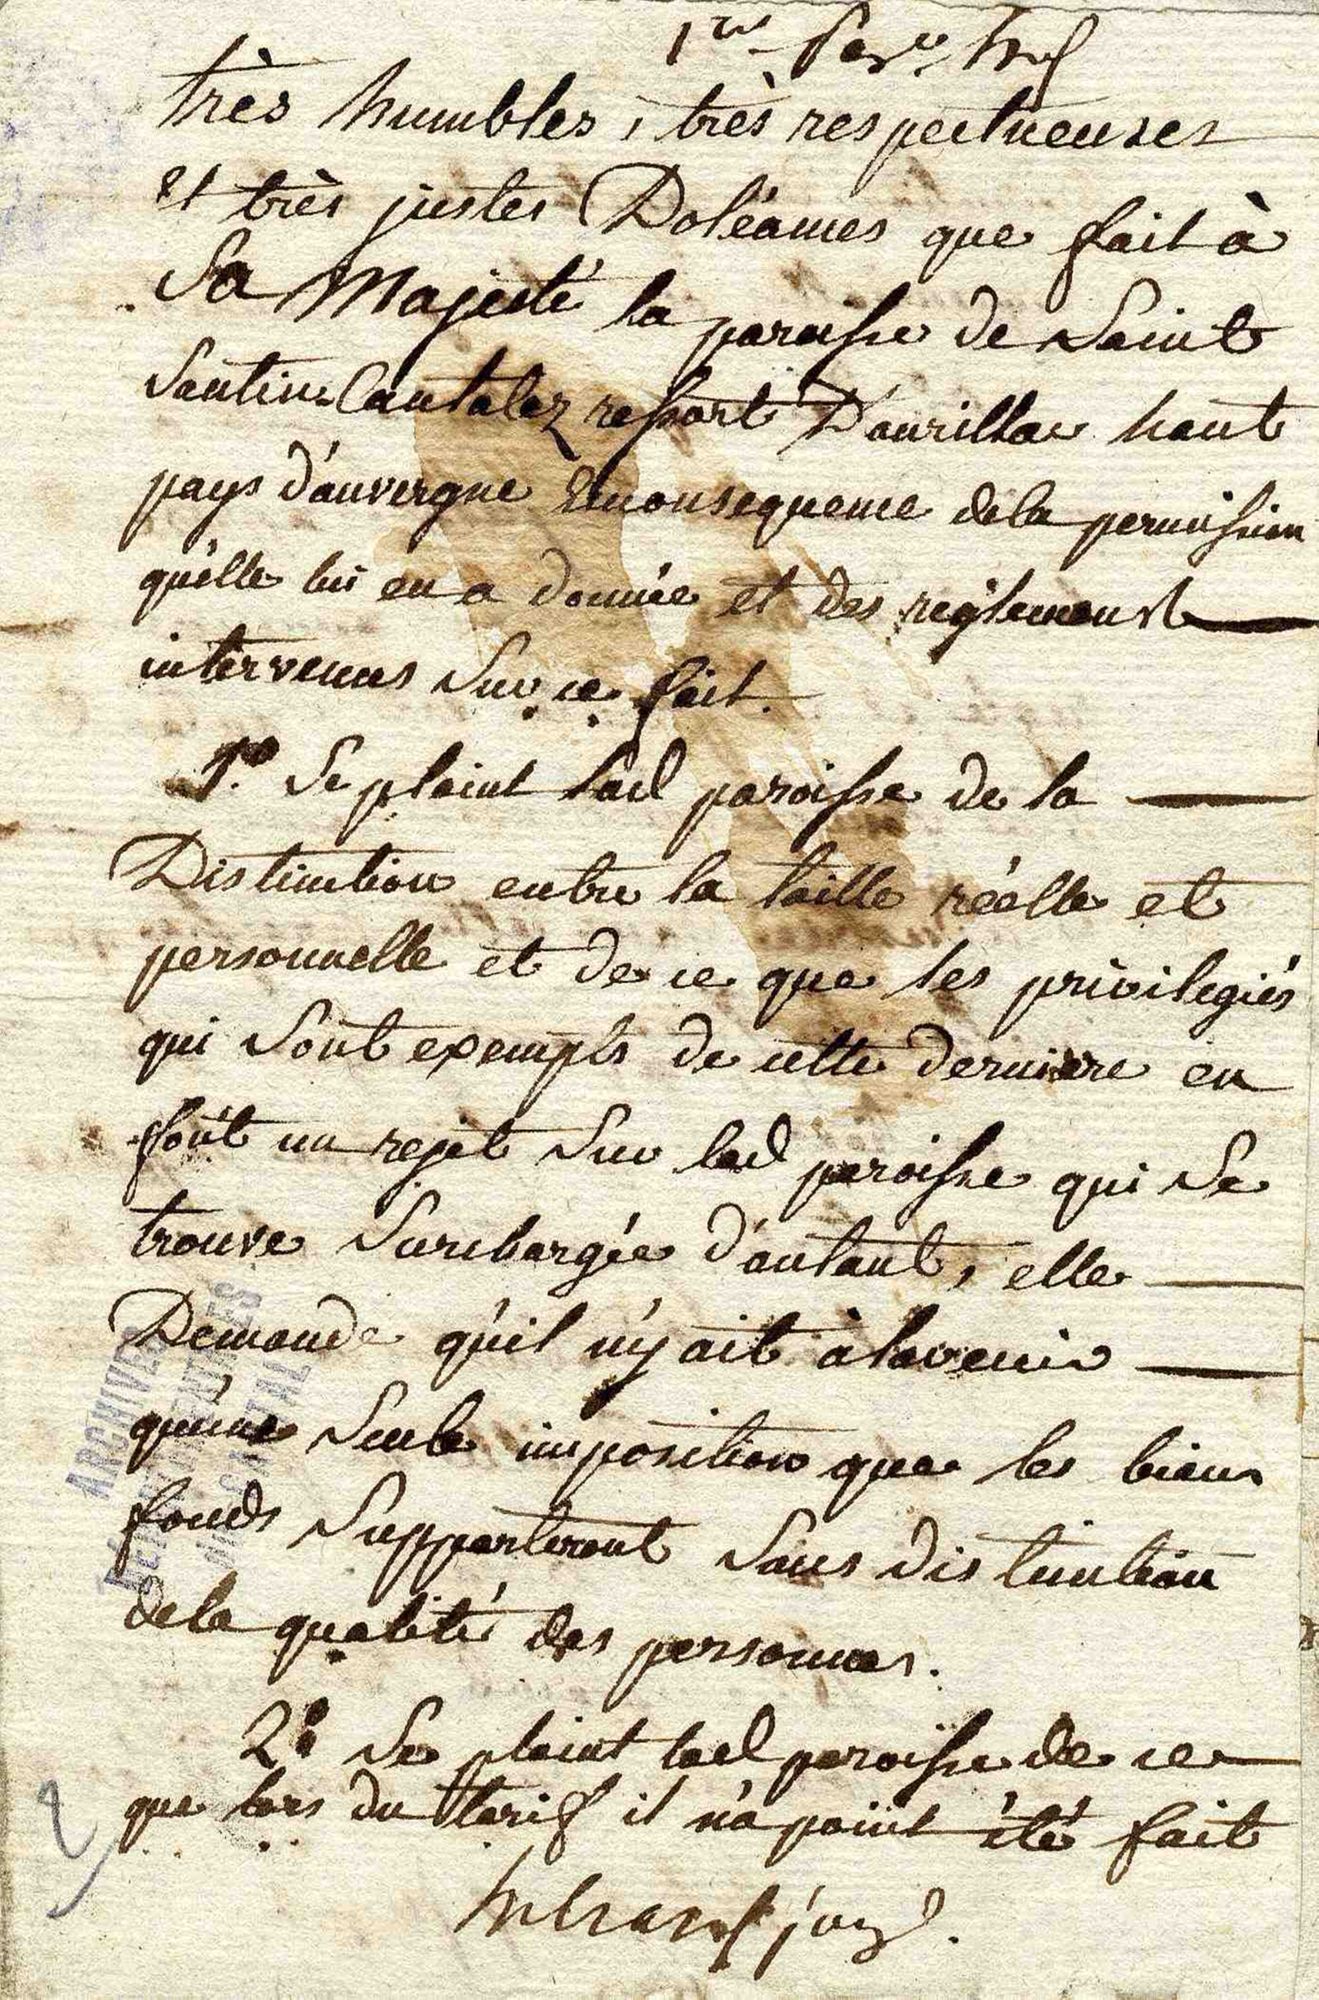 1re page
très humbles, très respectueuses
et très justes Doléances que fait à
Sa Majesté la paroisse de Saint
Santin Cantalez ressort D'aurillac haut
pays d'auvergne Enconsequence dela permission
qu'elle lui en a donnée et des reglements
intervenus Sur ce fait.
1º. Se plaint lad paroisse de la
Distinction entre la taille réelle et
personnelle et de ce que les privilegiés
qui Sont exempts de cette derniere en
font un rejet Sur lad paroisse qui Se
trouve Surchargée d'autant, elle
Demande qu'il n'y ait à lavenir
qu'une Seule imposition que les biens
fonds Supporteront Sans distinction
dela qualité des personnes.
2º Se plaint lad paroisse de ce
que lors du tarif il n'a point été fait
juge.
ARCHIVES
DÉPARTEMENTALES
du CANTAL
2